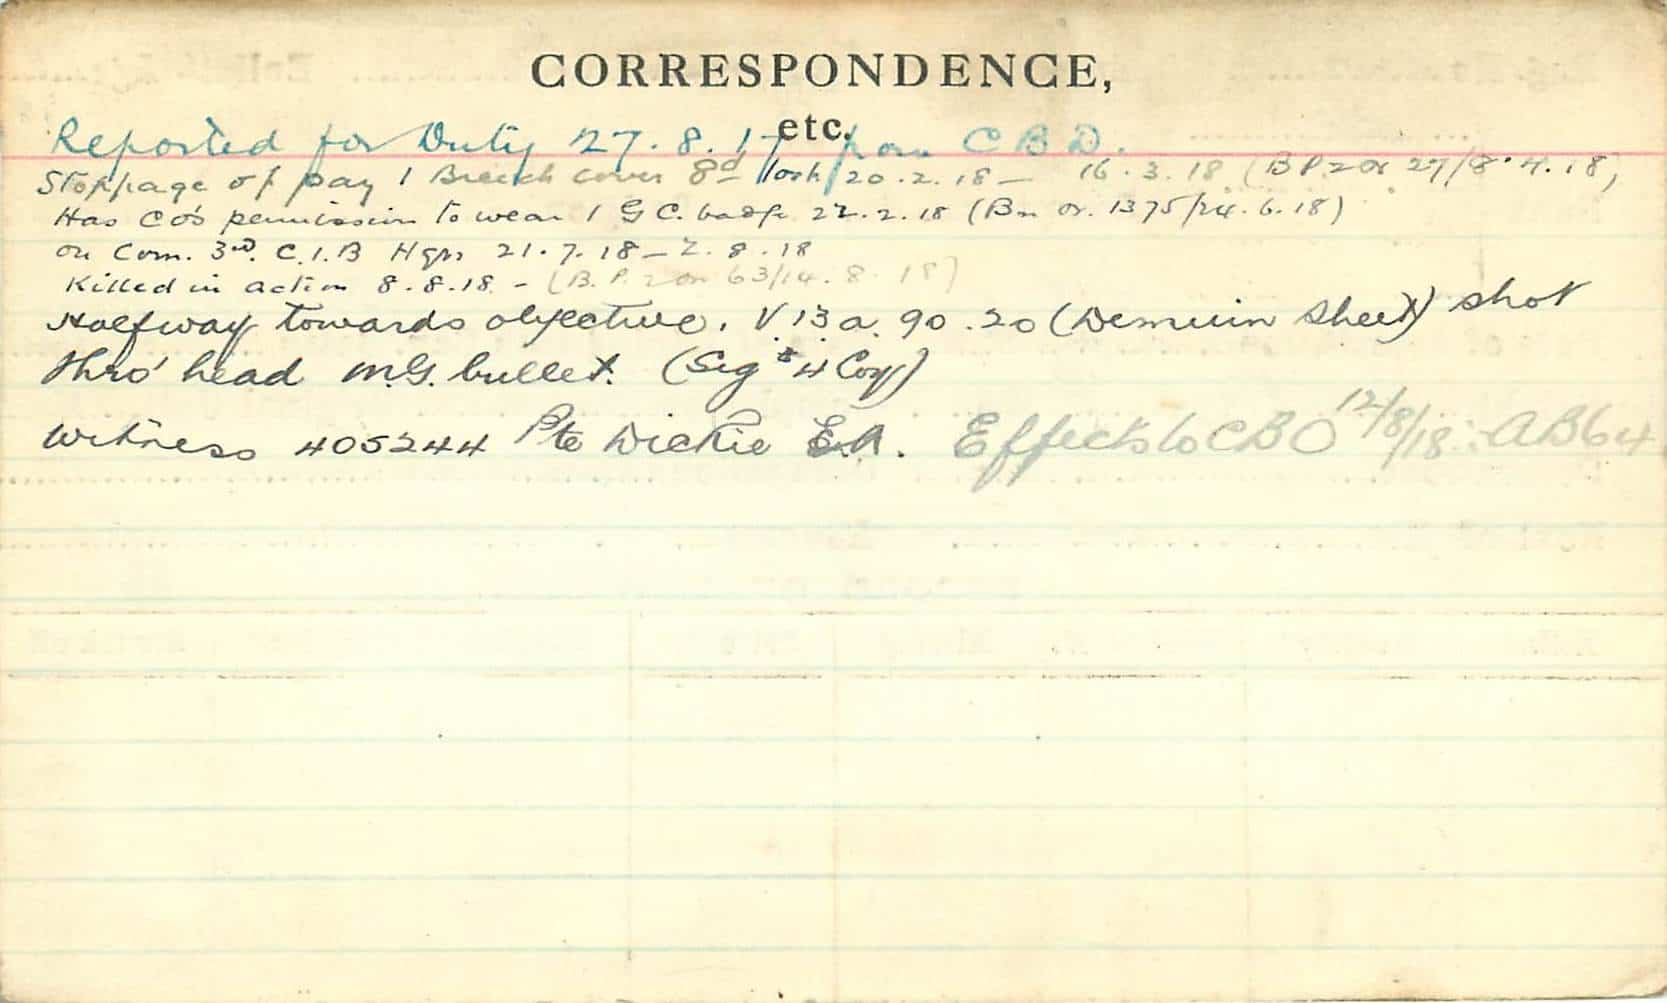 CORRESPONDENCE,
etc.
Reported for Duty 27.8.17 from C B D.
Stoppage of pay 1 Breech cover 8d lost 20.2.18 – 16.3.18 (B P 2 or 27/8.4.18)
Has CO's permission to wear 1 G C. badge 22.2.18 (Bn or. 1375/24.6.18)
on Com. 3rd. C.I.B Hqrs 21.7.18 – 2.8.18
Killed in action 8.8.18 – (B. P. 2 or 63/14.8.18)
Halfway towards objective. V.13 a. 90.20 (Demuin Sheet) shot
thro' head M.G. bullet. (Sig 4 Coy)
Witness 405244 Pte Dickie E.A. Effects to CBO 12/8/18. AB64